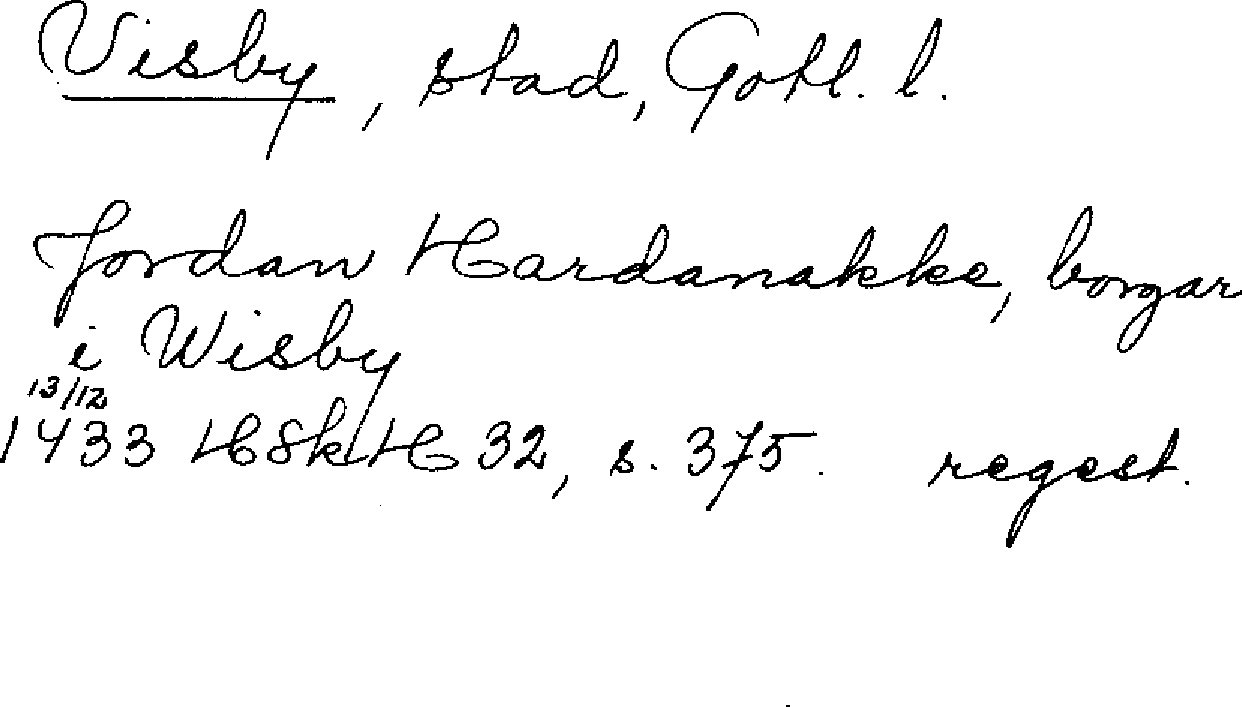 Visby, stad, Gotl. l.
Jordan Hardanakke, borgar
i Wisby
13/12
1433 HSkH 32, s. 375. regest.